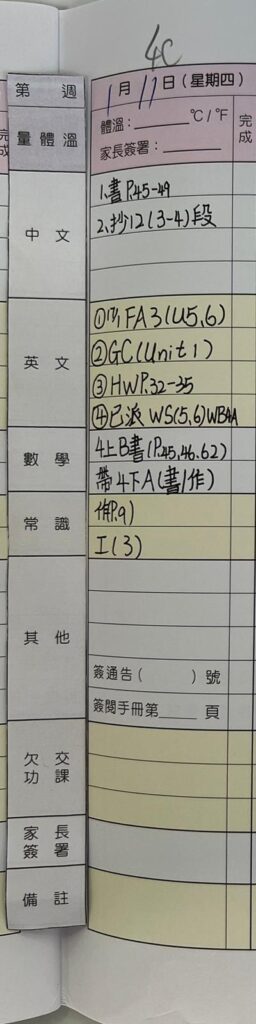 4C
第 週
1月11日(星期四)
量體溫
體溫：______°C/°F
家長簽署：______
完成
中文
1.書P.45-49
2.抄12(3-4)段
英文
FA3(U5,6)
②GC(Unit 1)
③HWP.32-35
④已派 WS(5,6)WB4A
數學
4上B書(P.45.46.62)
帶4下A(書/作)
常識
作P.9)
I(3)
其他
簽通告( )號
簽閱手冊第____頁
欠交功課
家長簽署
備註